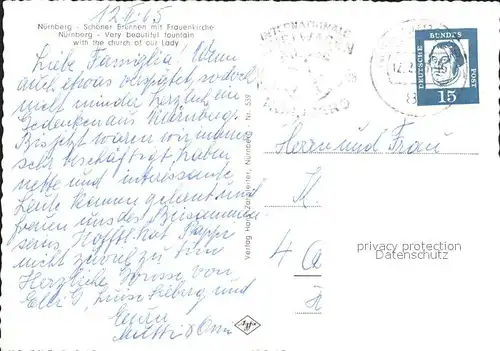 12.6.65
Nürnberg - Schöner Brunnen mit Frauenkirche
Nürnberg - Very beautiful fountain
with the church of our Lady
Liebe Famiglia! Wenn
auch etwas verspätet, so doch
nicht minder herzlich ein
Gedenken aus Nürnberg.
Bis jetzt waren wir immer
sehr beschäftigt, haben
nette und interessante
Leute kennen gelernt und
freuen uns des Beisammen-
seins. Hofftl. hat Pappi
nicht zuviel zu tun
Herzliche Grüsse von
Elli, Luise und
Eure
Mutti & Oma
Verlag Hans Nürnberg Nr. 559
Agfa
INTERNATIONALE
NÜRNBERG
12.
8
DEUTSCHE BUNDES POST
15
Herrn und Frau
K.
4
privacy protection
Datenschutz